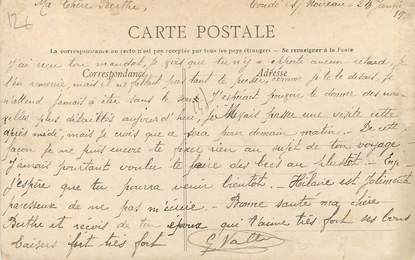 126
Ma Chère Berthe, Condé s/ Noireau 24
CARTE POSTALE
La correspondance au recto n'est pas acceptée par tous les pays étrangers - Se renseigner à la Poste
Correspondance Adresse
J'ai reçu ton mandat, je vois que tu n'y a apporté aucun retard, je
t'en remercie, mais il ne fallait pas tant te presser comme je te le disais, je
n'attend jamais à être sans le sou. J'espérais pouvoir te donner des nou-
velles plus détaillées aujourd'hui, je passer une visite cette
après midi, mais je crois que ce sera pour demain matin. De cette
façon je ne puis encore te fixer rien au sujet de ton voyage
J'aurais pourtant voulu te faire des becs au plustot. Enfin
j'espère que tu pourra venir bientot. Hilaire est joliment
paresseux de ne pas m'écrire. Bonne santé ma chère
Berthe et reçois de ton époux qui t'aime très fort ses bons
baisers fort très fort